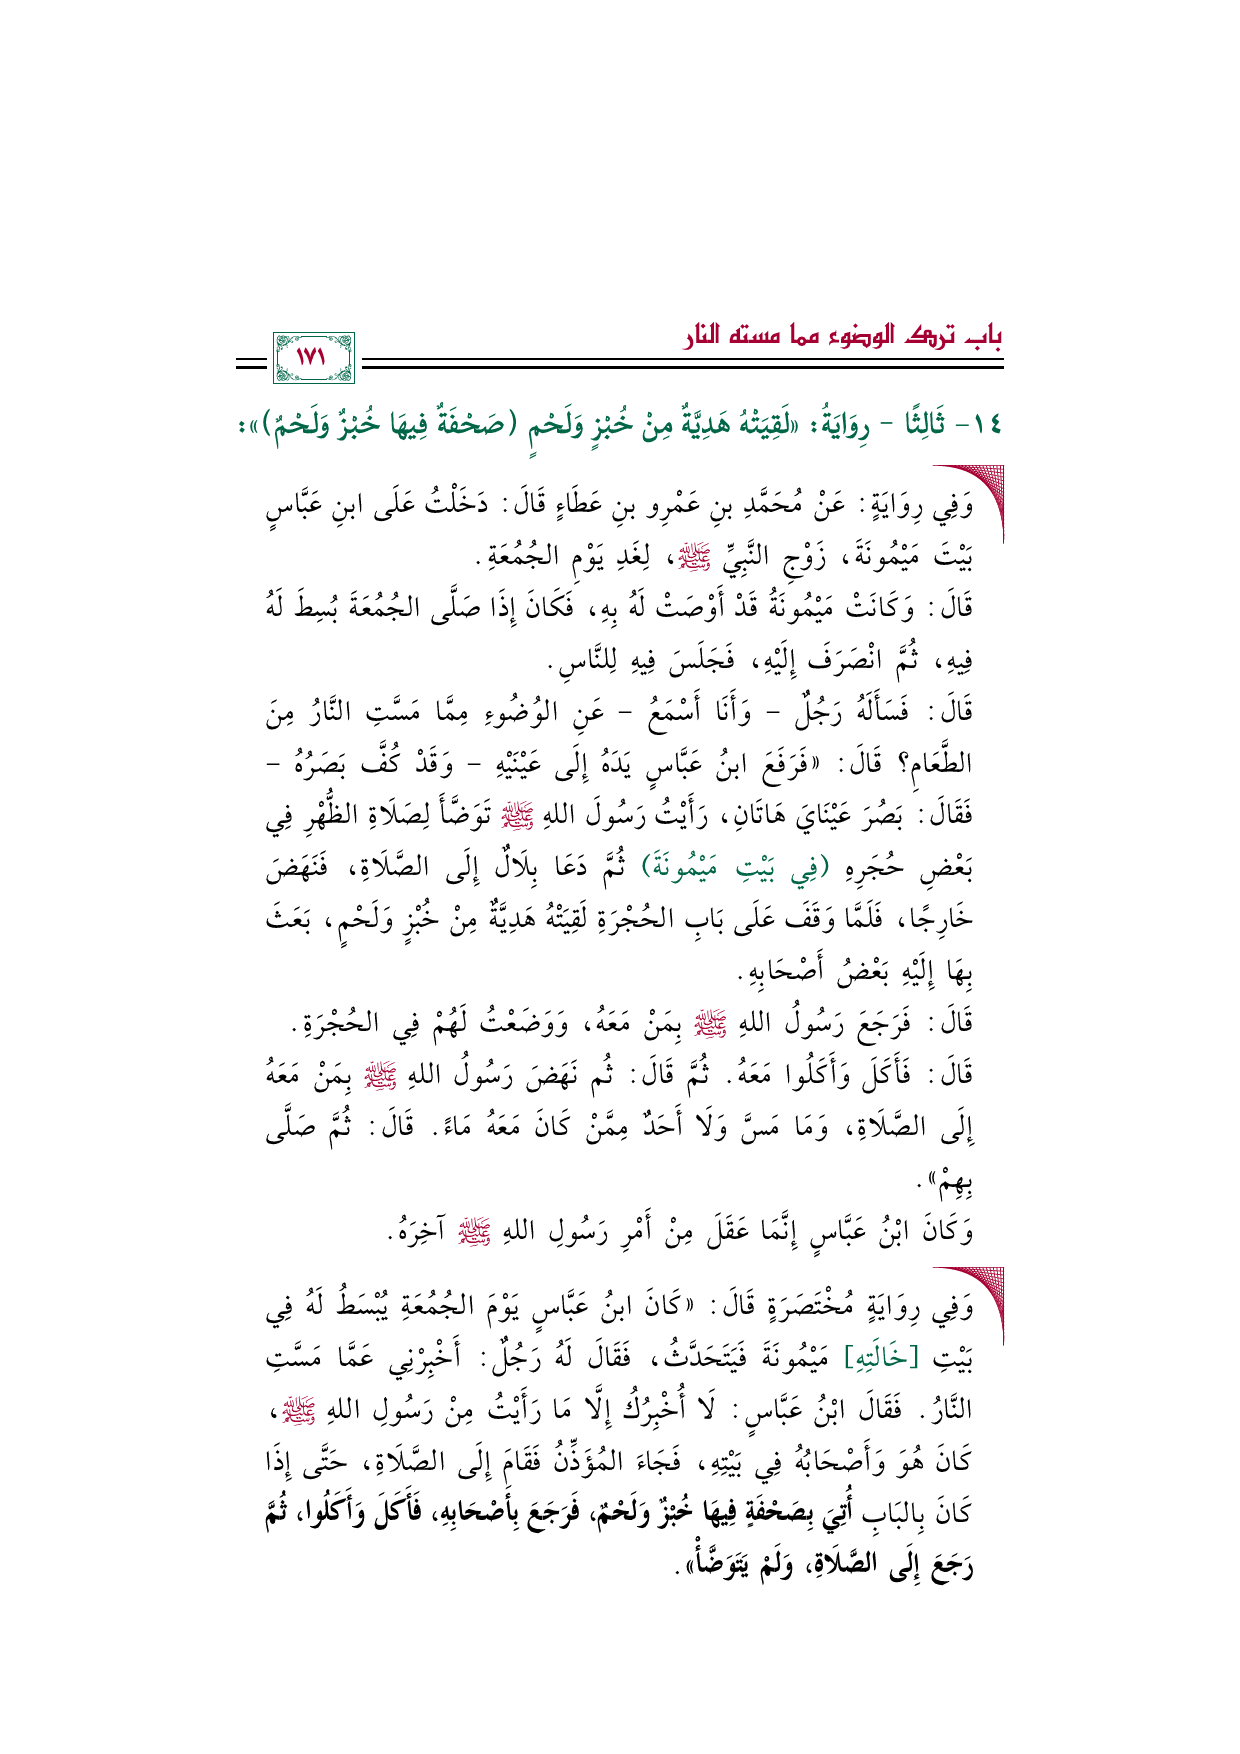 باب ترك الوضوء مما مسته النار
١٧١
١٤- ثَالِثًا - رِوَايَةُ: «لَقِيَتْهُ هَدِيَّةٌ مِنْ خُبْزٍ وَلَحْمٍ (صَحْفَةٌ فِيهَا خُبْزٌ وَلَحْمٌ)»:
وَفِي رِوَايَةٍ: عَنْ مُحَمَّدِ بنِ عَمْرِو بنِ عَطَاءٍ قَالَ: دَخَلْتُ عَلَى ابنِ عَبَّاسٍ
بَيْتَ مَيْمُونَةَ، زَوْجِ النَّبِيِّ ﷺ، لِغَدِ يَوْمِ الجُمُعَةِ.
قَالَ: وَكَانَتْ مَيْمُونَةُ قَدْ أَوْصَتْ لَهُ بِهِ، فَكَانَ إِذَا صَلَّى الجُمُعَةَ بُسِطَ لَهُ
فِيهِ، ثُمَّ انْصَرَفَ إِلَيْهِ، فَجَلَسَ فِيهِ لِلنَّاسِ.
قَالَ: فَسَأَلَهُ رَجُلٌ - وَأَنَا أَسْمَعُ - عَنِ الوُضُوءِ مِمَّا مَسَّتِ النَّارُ مِنَ
الطَّعَامِ؟ قَالَ: «فَرَفَعَ ابنُ عَبَّاسٍ يَدَهُ إِلَى عَيْنَيْهِ - وَقَدْ كُفَّ بَصَرُهُ -
فَقَالَ: بَصُرَ عَيْنَايَ هَاتَانِ، رَأَيْتُ رَسُولَ اللهِ ﷺ تَوَضَّأَ لِصَلَاةِ الظُّهْرِ فِي
بَعْضِ حُجَرِهِ (فِي بَيْتِ مَيْمُونَةَ) ثُمَّ دَعَا بِلَالٌ إِلَى الصَّلَاةِ، فَنَهَضَ
خَارِجًا، فَلَمَّا وَقَفَ عَلَى بَابِ الحُجْرَةِ لَقِيَتْهُ هَدِيَّةٌ مِنْ خُبْزٍ وَلَحْمٍ، بَعَثَ
بِهَا إِلَيْهِ بَعْضُ أَصْحَابِهِ.
قَالَ: فَرَجَعَ رَسُولُ اللهِ ﷺ بِمَنْ مَعَهُ، وَوَضَعْتُ لَهُمْ فِي الحُجْرَةِ.
قَالَ: فَأَكَلَ وَأَكَلُوا مَعَهُ. ثُمَّ قَالَ: ثُم نَهَضَ رَسُولُ اللهِ ﷺ بِمَنْ مَعَهُ
إِلَى الصَّلَاةِ، وَمَا مَسَّ وَلَا أَحَدٌ مِمَّنْ كَانَ مَعَهُ مَاءً. قَالَ: ثُمَّ صَلَّى
بِهِمْ».
وَكَانَ ابْنُ عَبَّاسٍ إِنَّمَا عَقَلَ مِنْ أَمْرِ رَسُولِ اللهِ ﷺ آخِرَهُ.
وَفِي رِوَايَةٍ مُخْتَصَرَةٍ قَالَ: «كَانَ ابنُ عَبَّاسٍ يَوْمَ الجُمُعَةِ يُبْسَطُ لَهُ فِي
بَيْتِ [خَالَتِهِ] مَيْمُونَةَ فَيَتَحَدَّثُ، فَقَالَ لَهُ رَجُلٌ: أَخْبِرْنِي عَمَّا مَسَّتِ
النَّارُ. فَقَالَ ابْنُ عَبَّاسٍ: لَا أُخْبِرُكُ إِلَّا مَا رَأَيْتُ مِنْ رَسُولِ اللهِ ﷺ،
كَانَ هُوَ وَأَصْحَابُهُ فِي بَيْتِهِ، فَجَاءَ المُؤَذِّنُ فَقَامَ إِلَى الصَّلَاةِ، حَتَّى إِذَا
كَانَ بِالبَابِ أُتِيَ بِصَحْفَةٍ فِيهَا خُبْزٌ وَلَحْمٌ، فَرَجَعَ بِأَصْحَابِهِ، فَأَكَلَ وَأَكَلُوا، ثُمَّ
رَجَعَ إِلَى الصَّلَاةِ، وَلَمْ يَتَوَضَّأْ».